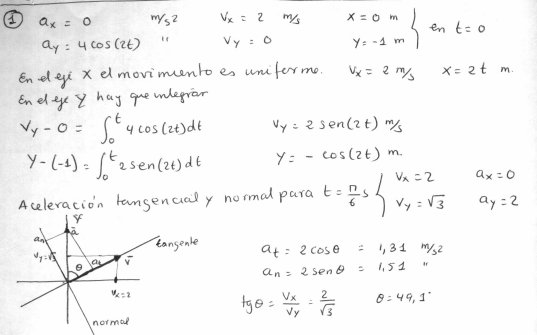 ① aₓ = 0 m/s2 Vₓ = 2 m/s X = 0 m
a_y = 4 cos(2t) " V_y = 0 Y = -1 m } en t = 0
En el eje X el movimiento es uniforme. Vₓ = 2 m/s X = 2t m.
En el eje Y hay que integrar
V_y - 0 = ∫₀ᵗ 4 cos(2t)dt V_y = 2 sen(2t) m/s
Y-(-1) = ∫₀ᵗ 2 sen(2t)dt Y = - cos(2t) m.
Aceleración tangencial y normal para t = π/6 s { Vₓ = 2 aₓ = 0
V_y = √3 a_y = 2
Y
aₙ
a
tangente
V_y=√3
θ
aₜ
v
Vₓ=2
normal
aₜ = 2 cosθ = 1,31 m/s2
aₙ = 2 senθ = 1,51 "
tgθ = Vₓ/V_y = 2/√3 θ = 49,1°